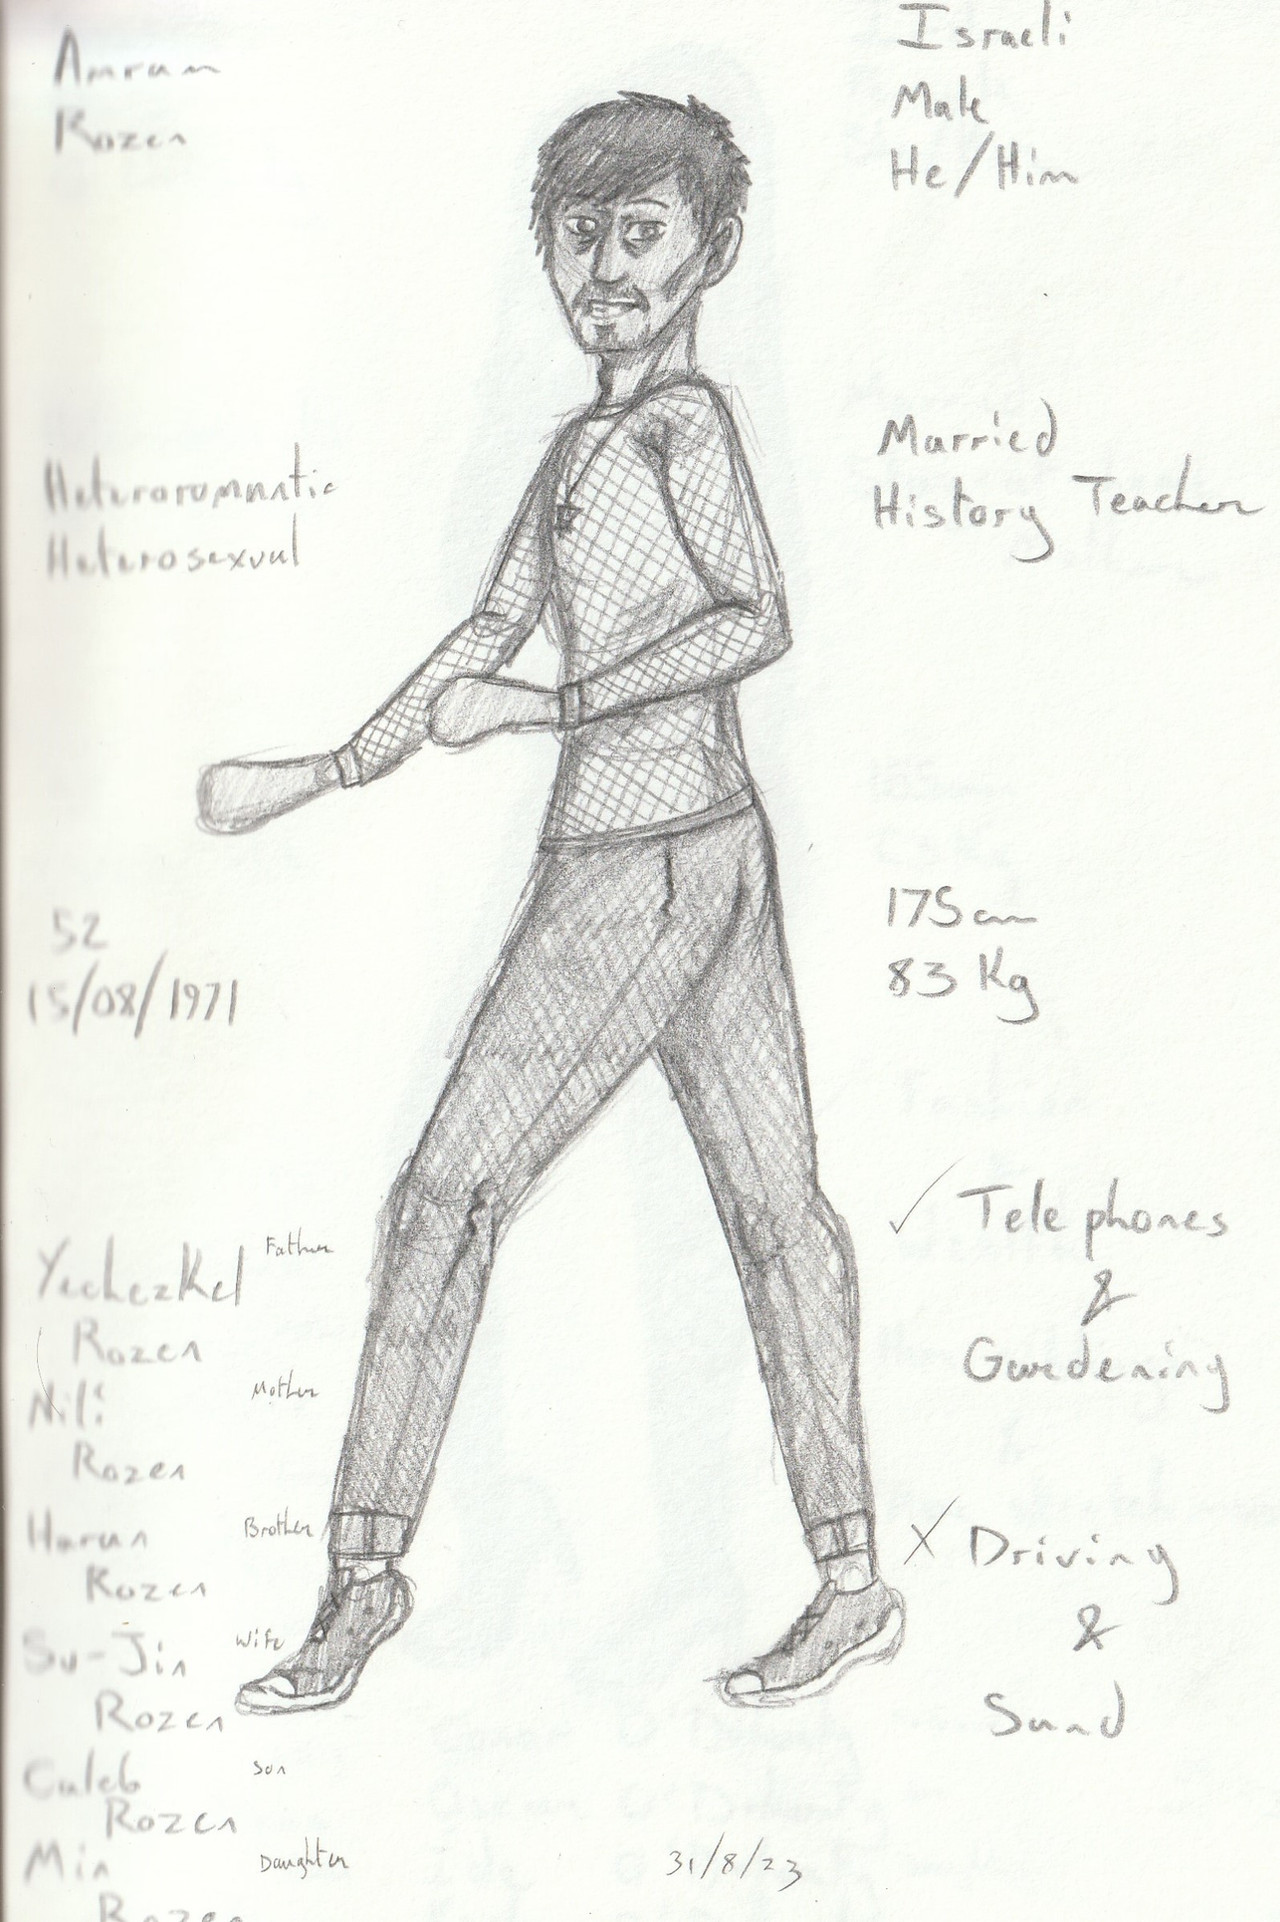 Amram
Rozen
Israeli
Male
He/Him
Heteroromantic
Heterosexual
Married
History Teacher
52
15/08/1971
175cm
83 Kg
Yechezkel Father
Rozen
Nili Mother
Rozen
Harun Brother
Rozen
Su-Jin Wife
Rozen
Caleb Son
Rozen
Min Daughter
Rozen
✓ Telephones
&
Gardening
X Driving
&
Sand
31/8/23